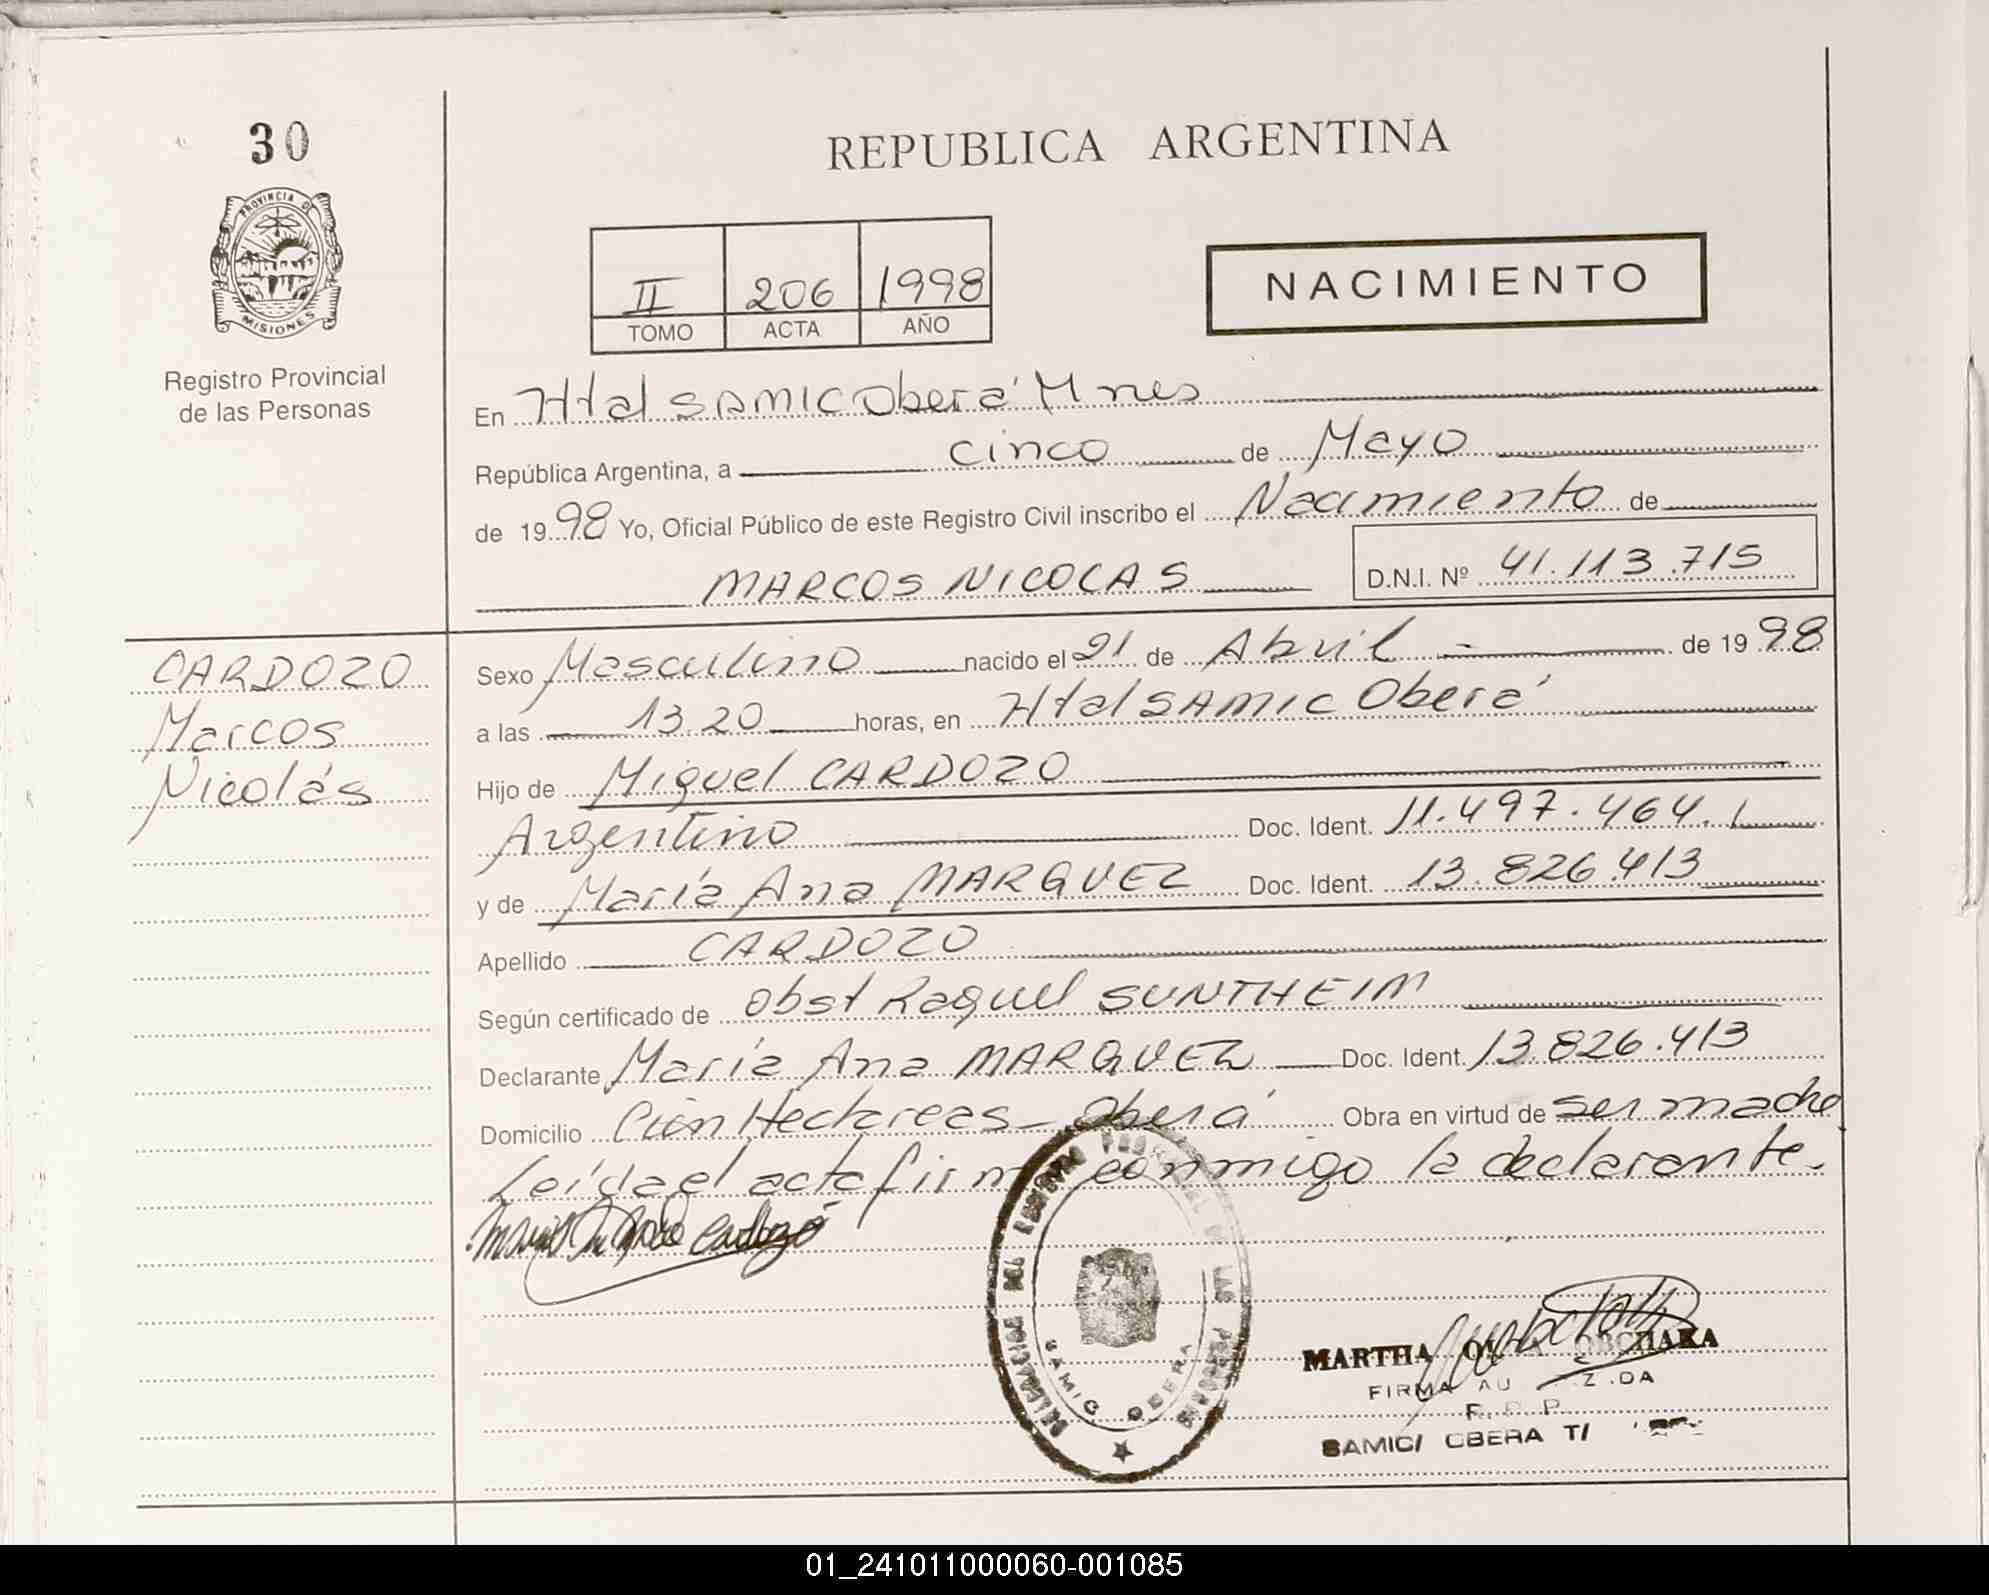 30
REPUBLICA ARGENTINA
PROVINCIA D
MISIONES
Registro Provincial
de las Personas
II 206 1998
TOMO ACTA AÑO
NACIMIENTO
En Htal SAMIC Oberá Mnes
República Argentina, a cinco de Mayo
de 1998 Yo, Oficial Público de este Registro Civil inscribo el Nacimiento de
MARCOS NICOLAS D.N.I. Nº 41.113.715
CARDOZO
Marcos
Nicolás
Sexo Masculino nacido el 21 de Abril - de 1998
a las 13.20 horas, en Htal SAMIC Oberá
Hijo de Miguel CARDOZO
Argentino Doc. Ident. 11.497.464.
y de María Ana MARQUEZ Doc. Ident. 13.826.413
Apellido CARDOZO
Según certificado de Obst Raquel SUNTHEIM
Declarante María Ana MARQUEZ Doc. Ident. 13.826.413
Domicilio Cien Hectareas - Oberá Obra en virtud de ser madre
Leída el acta firma conmigo la declarante.
DELEGACION DEL REGISTRO PROVINCIAL DE LAS PERSONAS
SAMIC OBERA
MARTHA
FIRMA
SAMIC/ OBERA
01_241011000060-001085